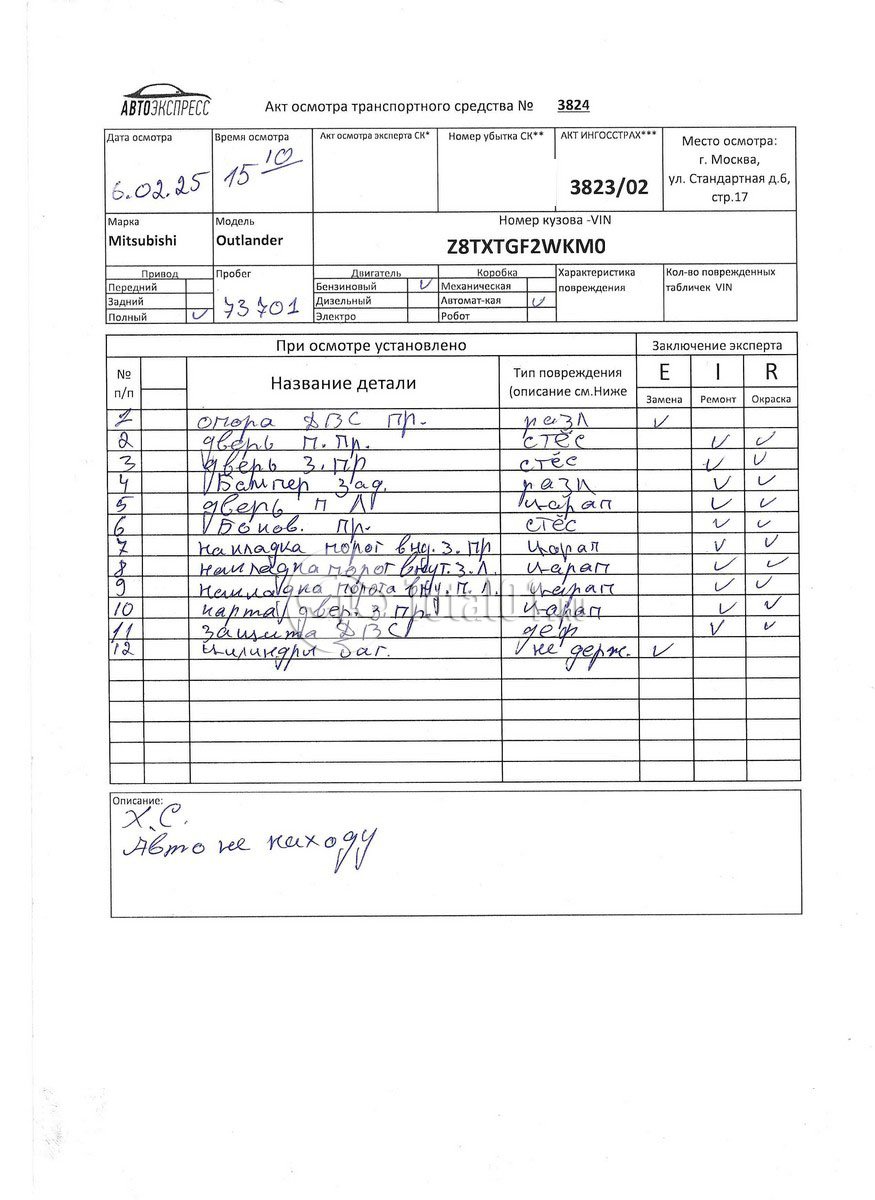 АВТОЭКСПРЕСС
Акт осмотра транспортного средства № 3824
Дата осмотра
6.02.25
Время осмотра
15 10
Акт осмотра эксперта СК*
Номер убытка СК**
АКТ ИНГОССТРАХ***
3823/02
Место осмотра:
г. Москва,
ул. Стандартная д.6,
стр.17
Марка
Mitsubishi
Модель
Outlander
Номер кузова -VIN
Z8TXTGF2WKM0
Привод
Передний
Задний
Полный ✓
Пробег
73701
Двигатель
Бензиновый ✓
Дизельный
Электро
Коробка
Механическая
Автомат-кая ✓
Робот
Характеристика
повреждения
Кол-во поврежденных
табличек VIN
При осмотре установлено
Заключение эксперта
№
п/п
Название детали
Тип повреждения
(описание см.Ниже
E I R
Замена Ремонт Окраска
1 опора ДВС пр. разл ✓
2 дверь п. пр. стёс ✓ ✓
3 дверь з. пр стёс ✓ ✓
4 Бампер зад. разл ✓ ✓
5 дверь п л царап ✓ ✓
6 Боков. пр. стёс ✓ ✓
7 накладка порог вну. з. пр царап ✓ ✓
8 накладка порог внут. з. л. царап ✓ ✓
9 накладка порога вну. п. л. царап ✓ ✓
10 карта двер. з пр царап ✓ ✓
11 защита ДВС деф ✓ ✓
12 цилиндры баг. не держ. ✓
Описание:
Х.С.
Авто не находу